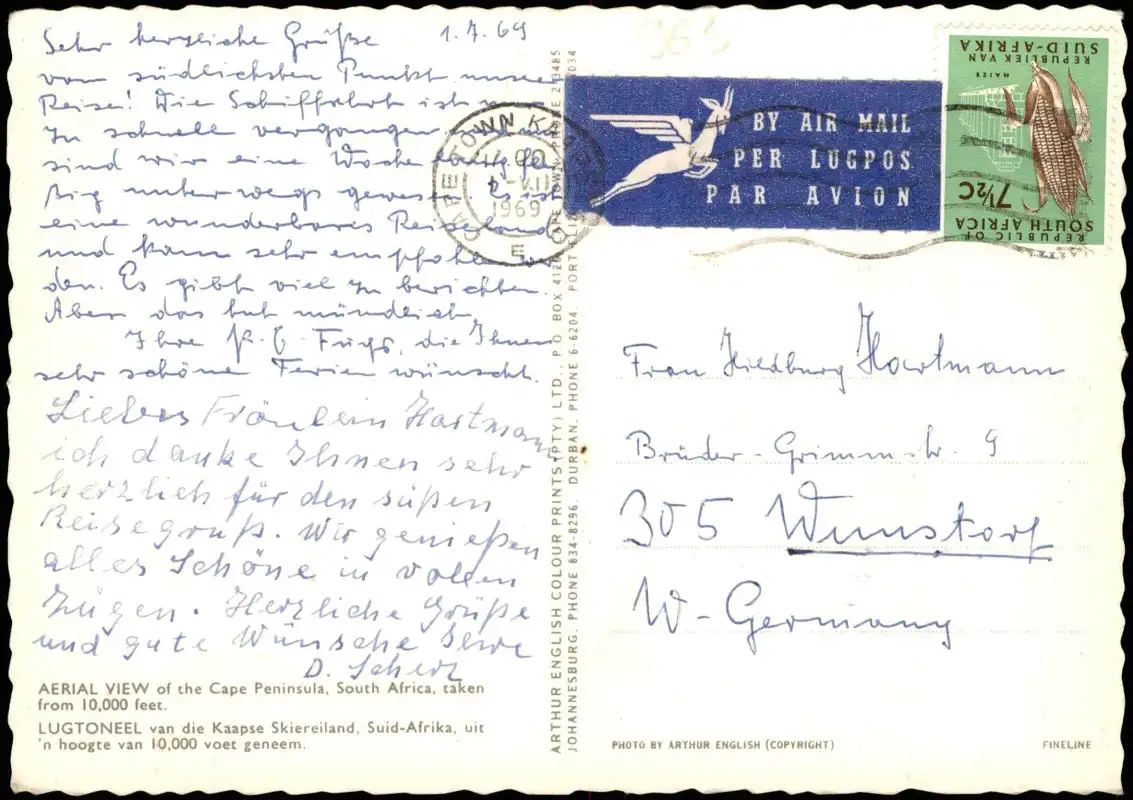 Sehr herzliche Grüße 1.7.69
vom südlichsten Punkt unserer
Reise! Die Schiffahrt ist
zu schnell vergangen und nun
sind wir eine Woche lang flei
ßig unterwegs gewesen. Es ist
eine wunderbares Reiseland
und kann sehr empfohlen wer
den. Es gibt viel zu berichten.
Aber das tut mündlich
Ihre Fugs, die Ihnen
sehr schöne Ferien wünscht.
Liebes Fräulein Hartmann
ich danke Ihnen sehr
herzlich für den süßen
Reisegruß. Wir genießen
alles Schöne in vollen
Zügen. Herzliche Grüße
und gute Wünsche Ihre
D. Scherz
AERIAL VIEW of the Cape Peninsula, South Africa, taken
from 10,000 feet.
LUGTONEEL van die Kaapse Skiereiland, Suid-Afrika, uit
'n hoogte van 10,000 voet geneem.
ARTHUR ENGLISH COLOUR PRINTS (PTY) LTD., P.O. BOX 4120, CAPE TOWN, PHONE 2-3485
JOHANNESBURG, PHONE 834-8296. DURBAN, PHONE 6-6204. PORT
CAPE TOWN
VII
1969
E
BY AIR MAIL
PER LUGPOS
PAR AVION
REPUBLIEK VAN
SUID-AFRIKA
MAIZE
7½C
REPUBLIC OF
SOUTH AFRICA
Frau Hiedburg Hartmann
Brüder-Grimm-str. 9
305 Wunstorf
W-Germany
PHOTO BY ARTHUR ENGLISH (COPYRIGHT)
FINELINE